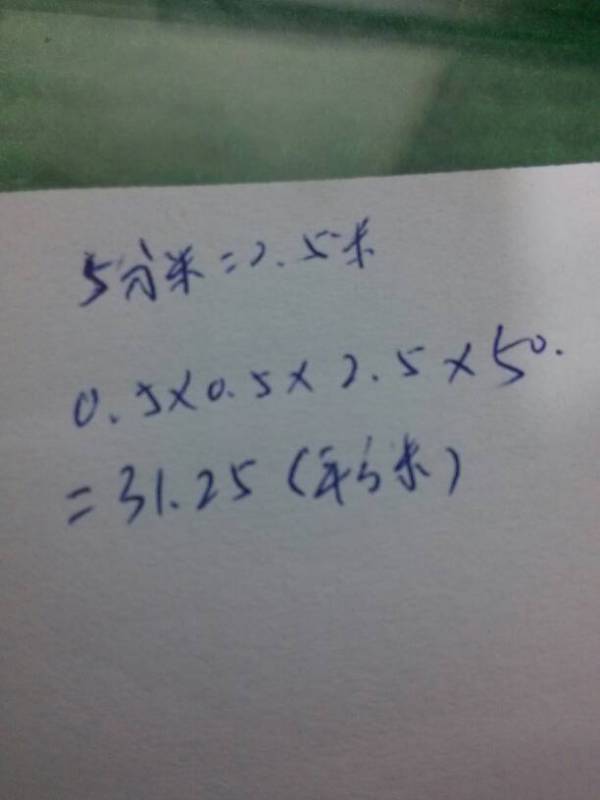 5分米=2.5米
0.5×0.5×2.5×50.
=31.25(平方米)